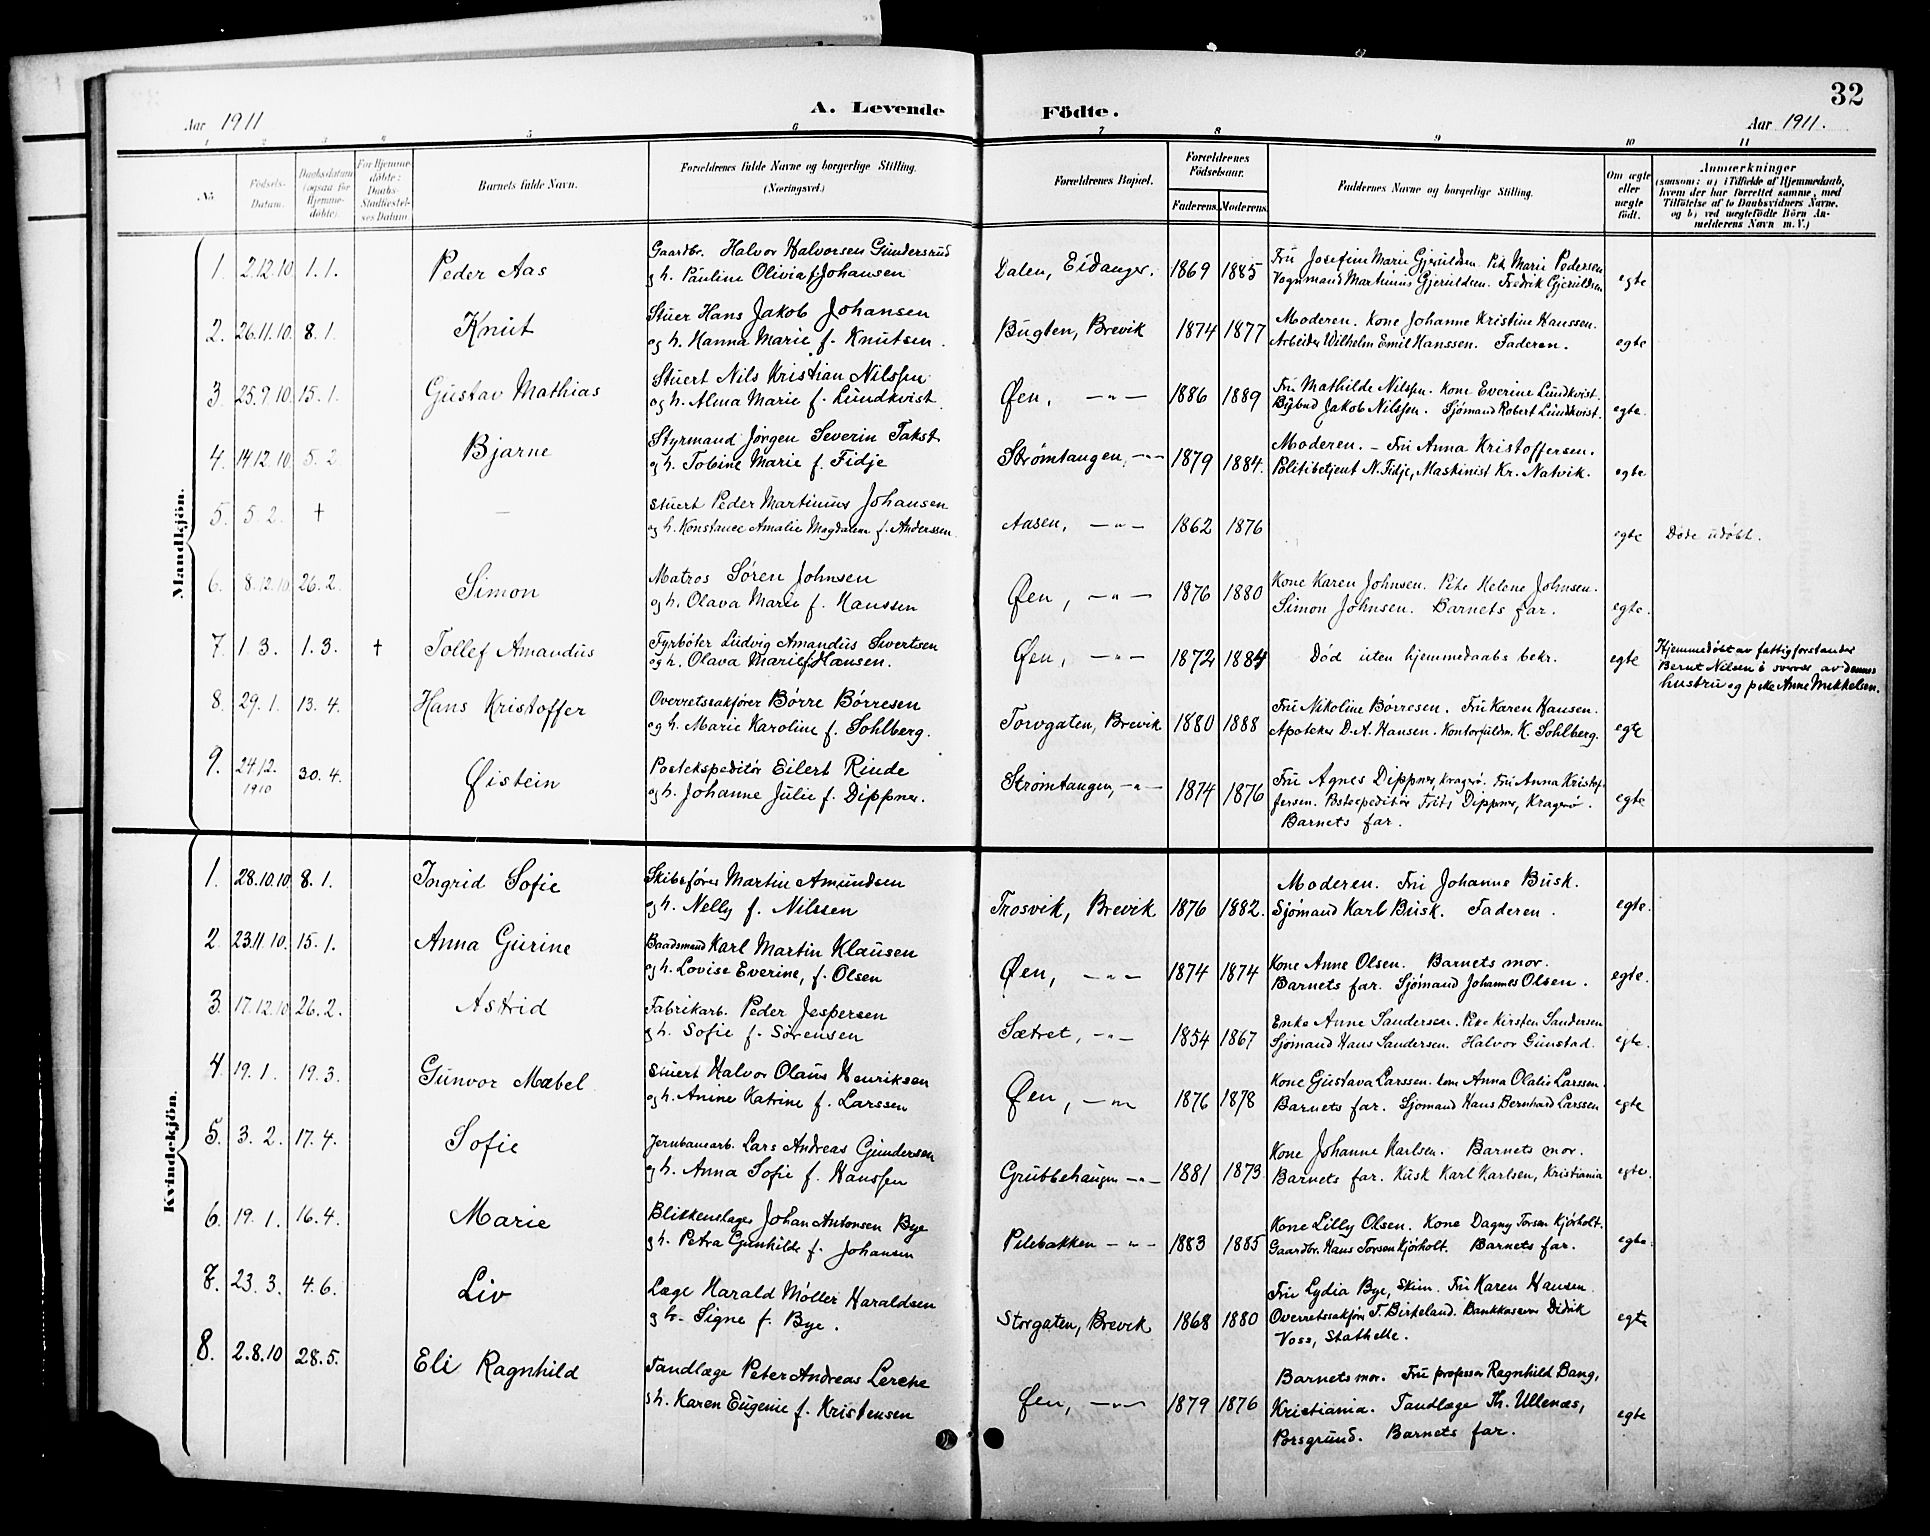 32
Aar 1911
A. Levende Födte.
Aar 1911.
1 2 3 4 5 6 7 8 9 10 11
No
Födsels-Datum.
Daabsdatum (ogsaa for Hjemmedöbte).
For Hjemmedöbte: Daabs-Stadfæstelses Datum
Barnets fulde Navn.
Forældrenes fulde Navne og borgerlige Stilling. (Næringsvei.)
Forældrenes Bopæl.
Forældrenes Födselsaar.
Faderens. Moderens.
Faddernes Navne og borgerlige Stilling.
Om ægte eller uægte födt.
Anmærkninger
(saasom: a) i Tilfælde af Hjemmedaab,
hvem der har forrettet samme, med
Tilföielse af to Daabsvidners Navne.
og b) ved uegtefödte Börn An-
melderens Navn m. V.)
Mandkjön.
1. 2.12.10 1.1. Peder Aas
Gaardbr. Halvor Halvorsen Gundersrud
og h. Pauline Olivia f. Johansen
Dalen, Eidanger. 1869 1885
Fru Josefine Marie Gjeruldsen. Pike Marie Pedersen
Vognmand Martinius Gjeruldsen. Fredrik Gjeruldsen
egte
2. 26.11.10 8.1. Knut
Stuer Hans Jakob Johansen
og h. Hanna Marie f. Knutsen.
Bugten, Brevik 1874 1877
Moderen. Kone Johanne Kristine Hanssen.
Arbeider Wilhelm Emil Hanssen. Faderen.
egte
3 25.9.10 15.1. Gustav Mathias
Stuert Nils Kristian Nilssen
og h. Alma Marie f. Lundkvist
Øen, —"— 1886 1889
Fru Mathilde Nilssen. Kone Everine Lundkvist.
Bybud Jakob Nilssen. Sjømand Robert Lundkvist.
egte.
4. 14.12.10 5.2 Bjarne
Styrmand Jørgen Severin Takst
og h. Tobine Marie f. Fidje
Strømtangen, —"— 1879 1884.
Moderen. – Fru Anna Kristoffersen.
Politibetjent N. Fidje, Maskinist Kr. Natvik.
egte
5. 5.2. † —
Stuert Peder Martinius Johansen
og h. Konstance Amalie Magdalene f. Anderssen
Aasen, —"— 1862 1876
egte Døde udøbt.
6. 8.12.10 26.2. Simon
Matros Søren Johnsen
og h. Olava Marie f. Hanssen
Øen, —"— 1876 1880
Kone Karen Johnsen. Pike Helene Johnsen.
Simon Johnsen. Barnets far.
egte.
7. 1.3. 1.3. † Tollef Amandus
Fyrbøter Ludvig Amandus Sivertsen
og h. Olava Marie f. Hansen.
Øen, —"— 1872 1884
Død uten hjemmedaabs bekr.
egte
Hjemmedøbt av fattigforstander
Bernt Nilsen i nærvær av dennes
hustru og pike Anne Mikkelsen.
8. 29.1. 13.4. Hans Kristoffer
Overretssakfører Børre Børresen
og h. Marie Karoline f. Sohlberg.
Torvgaten, Brevik 1880 1888
Fru Nikoline Børresen. Fru Karen Hansen.
Apoteker D.A. Hansen. Kontorfuldm. K. Sohlberg.
egte
9. 24/12. 1910 30.4. Øistein
Postekspeditør Eilert Rinde
og h. Johanne Julie f. Dippner.
Strømtangen, —"— 1874 1876
Fru Agnes Dippner, Kragerø. Fru Anna Kristof-
fersen. Postexpeditør Frits Dippner, Kragerø.
Barnets far.
egte
Kvindekjön.
1. 28.10.10 8.1. Ingrid Sofie
Skibsfører Martin Amundsen
og h. Nelly f. Nilssen
Trosvik, Brevik 1876 1882.
Moderen. Fru Johanne Busk.
Sjømand Karl Busk. Faderen.
egte.
2. 23.11.10. 15.1. Anna Gurine
Baadsmand Karl Martin Klausen
og h. Lovise Everine, f. Olsen
Øen, —"— 1874 1874
Kone Anne Olsen. Barnets mor.
Barnets far. Sjømand Johannes Olsen.
egte.
3. 17.12.10 26.2. Astrid
Fabrikarb. Peder Jespersen
og h. Sofie f. Sørensen
Sætret, —"— 1854 1867
Enke Anne Sandersen. Pike Kirsten Sandersen
Sjømand Hans Sandersen. Halvor Gunstad.
egte.
4 19.1. 19.3. Gunvor Mabel
Stuert Halvor Olaus Henriksen
og h. Anine Katrine f. Larssen
Øen, —"— 1876 1878
Kone Gustava Larssen. Kone Anna Olalie Larssen.
Barnets far. Sjømand Hans Bernhard Larssen
egte
5. 3.2. 17.4. Sofie
Jernbanearb. Lars Andreas Gundersen
og h. Anna Sofie f. Hanssen
Grubbehaugen —"— 1881 1873
Kone Johanne Karlsen. Barnets mor.
Barnets far. Kusk Karl Karlsen, Kristiania
egte.
6. 19.1. 16.4. Marie
Blikkenslager Johan Antonsen Bye
og h. Petra Gunhilde f. Johansen
Pilebakken —"— 1883 1885
Kone Lilly Olsen. Kone Dagny Torsen Kjørholt.
Gaardbr. Hans Torsen Kjørholt. Barnets far.
egte.
7. 23.3. 4.6. Liv
Læge Harald Møller Haraldsen
og h. Signe f. Bye.
Storgaten, Brevik 1868 1880
Fru Lydia Bye, Skien. Fru Karen Hansen
Overretssakfører T. Birkeland. Bankkasserer Didrik
Voss, Stathelle.
egte
8. 2.8.10 28.5. Eli Ragnhild
Tandlæge Peter Andreas Lerche
og h. Karen Eugenie f. Kristensen
Øen, —"— 1879 1876
Barnets mor. Fru professor Ragnhild Bang,
Kristiania. Tandlæge Th. Ullenæs,
Porsgrund. Barnets far.
egte